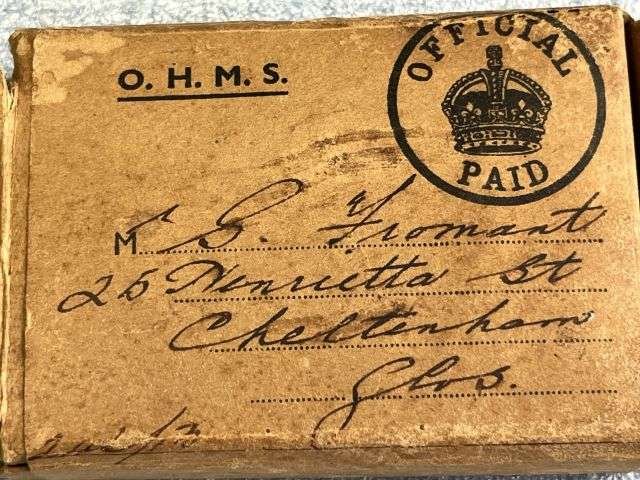 O. H. M. S.
OFFICIAL
PAID
Mr G. Fromant
25 Henrietta St
Cheltenham
Glos.